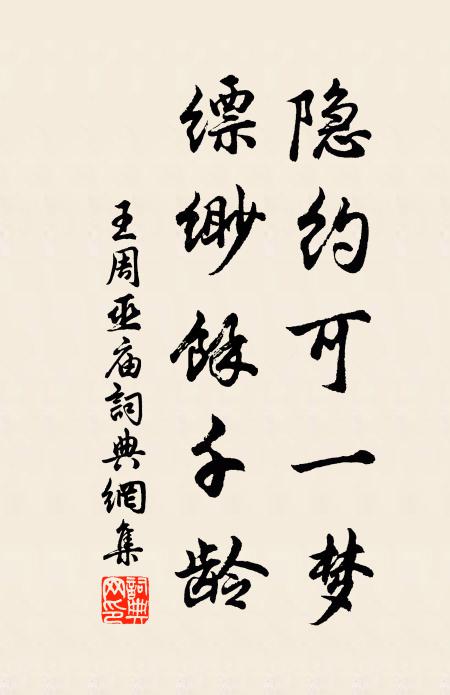 隐约可一梦
缥缈餘千龄
王周巫庙詞典網集
詞典网印